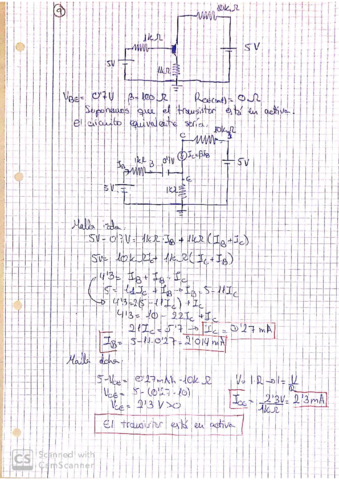 9
10kΩ
1kΩ
5V
1kΩ
5V
VBE = 0'7V β=100 Rce(on)= 0 Ω
Suponemos que el transistor está en activa.
El circuito equivalente sería:
C 10kΩ
IC=βIB
IB 1kΩ B 0'7V
5V
5V
1kΩ
Malla izda:
5V-0'7V = 1kΩ IB + 1kΩ (IB+IC)
5V = 10kΩ IC + 1kΩ (IC+IB)
4'3 = IB + IB + IC
5 = 11IC + IB → IB = 5-11IC
4'3=2(5-11IC)+IC
4'3 = 10 - 22IC + IC
21IC = 5'7 → IC = 0'27 mA
IB = 5-11·0'27 = 2'014 mA
Malla dcha:
5-VCE = 0'27mA · 10k Ω
VCE = 5-(0'27·10)
VCE = 2'3 V>0
V= I R → I = V/R
ICC = 2'3V/1kΩ = 2'3 mA
El transistor está en activa
CS Scanned with
CamScanner